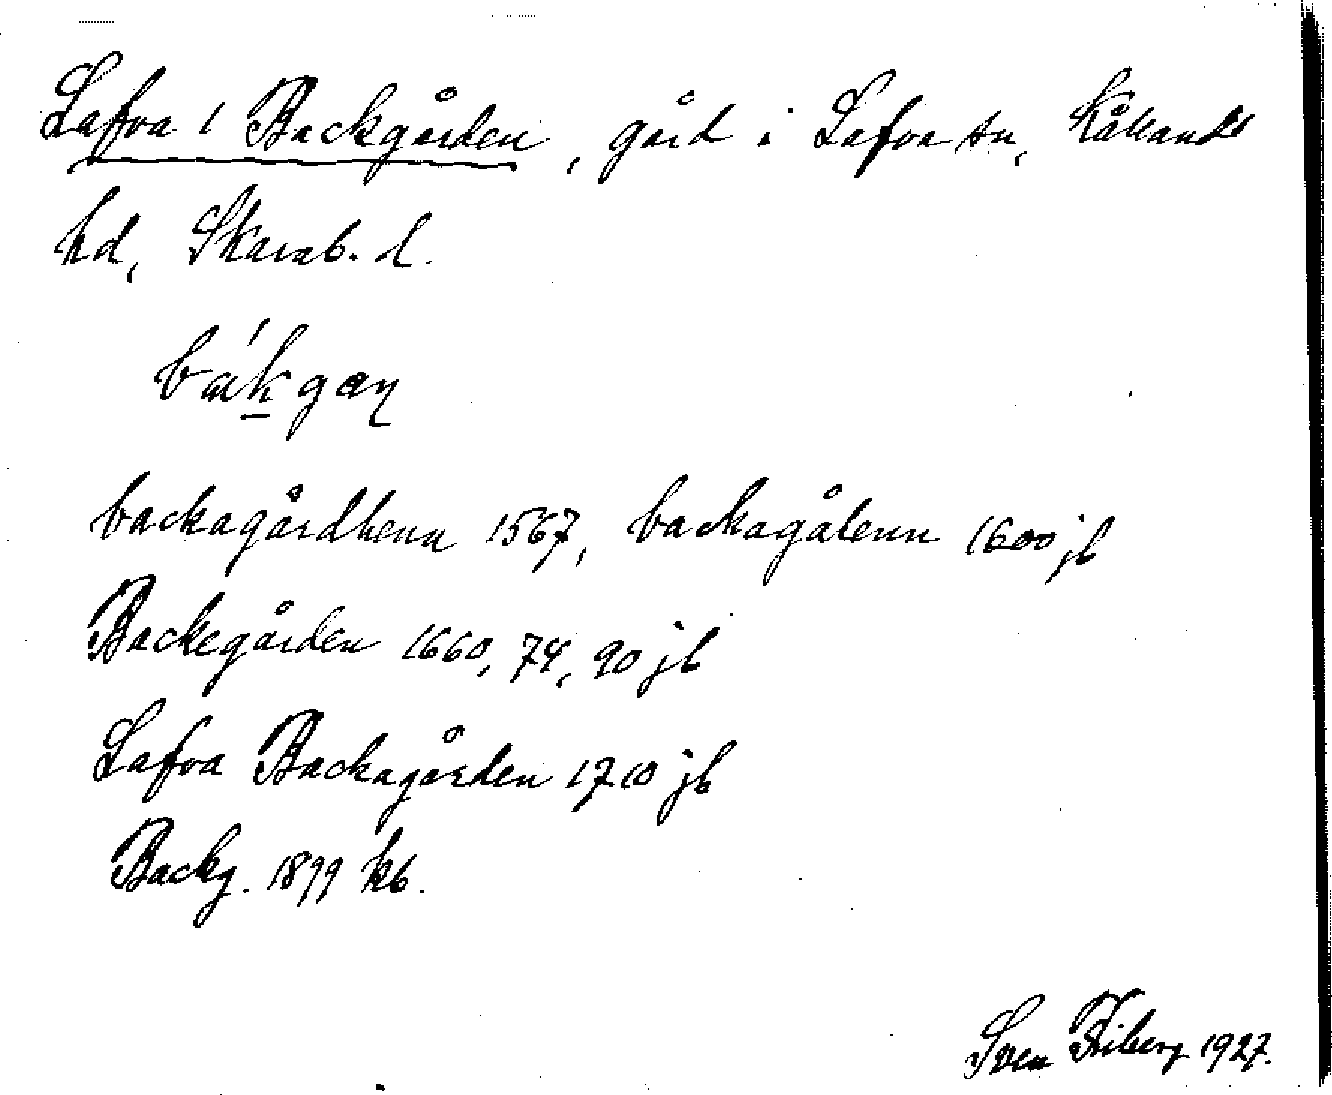 Lafva 1 Backgården, gård i Lafva sn, Kållands
hd, Skarab. l.
backagårdhenn 1567, backagålenn 1600 jb
Backegården 1660, 74, 90 jb
Lafva Backagården 1710 jb
Backg. 1899 kb.
Sven Friberg 1927.